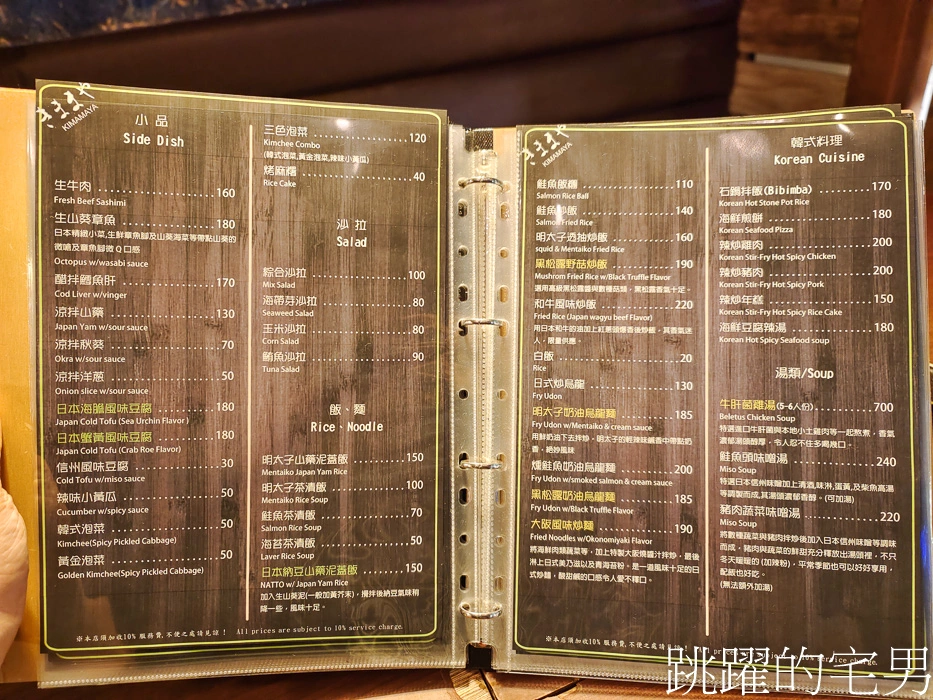 きままや
KIMAMAYA
小品
Side Dish
生牛肉 160
Fresh Beef Sashimi
生山葵章魚 180
日本精緻小菜,生鮮章魚腳及山葵海菜等帶點山葵的
微嗆及章魚腳微Q口感
Octopus w/wasabi sauce
醋拌鱈魚肝 170
Cod Liver w/vinger
涼拌山藥 130
Japan Yam w/sour sauce
涼拌秋葵 70
Okra w/sour sauce
涼拌洋蔥 50
Onion slice w/sour sauce
日本海膽風味豆腐 180
Japan Cold Tofu (Sea Urchin Flavor)
日本蟹黃風味豆腐 180
Japan Cold Tofu (Crab Roe Flavor)
信州風味豆腐 30
Cold Tofu w/miso sauce
辣味小黃瓜 50
Cucumber w/spicy sauce
韓式泡菜 50
Kimchee(Spicy Pickled Cabbage)
黃金泡菜 50
Golden Kimchee(Spicy Pickled Cabbage)
三色泡菜 120
Kimchee Combo
(韓式泡菜,黃金泡菜,辣味小黃瓜)
烤麻糬 40
Rice Cake
沙拉
Salad
綜合沙拉 100
Mix Salad
海帶芽沙拉 80
Seaweed Salad
玉米沙拉 80
Corn Salad
鮪魚沙拉 90
Tuna Salad
飯、麵
Rice、Noodle
明太子山藥泥蓋飯 150
Mentaiko Japan Yam Rice
明太子茶漬飯 100
Mentaiko Rice Soup
鮭魚茶漬飯 70
Salmon Rice Soup
海苔茶漬飯 50
Laver Rice Soup
日本納豆山藥泥蓋飯 150
NATTO w/ Japan Yam Rice
加入生山葵泥(一般加黃芥末),攪拌後納豆氣味稍
降一些,風味十足。
※本店須加收10% 服務費,不便之處請見諒! All prices are subject to 10% service charge.
きままや
KIMAMAYA
鮭魚飯糰 110
Salmon Rice Ball
鮭魚炒飯 140
Salmon Fried Rice
明太子透抽炒飯 160
squid & Mentaiko Fried Rice
黑松露野菇炒飯 190
Mushrom Fried Rice w/Black Truffle Flavor
選用高級黑松露醬與數種菇類,黑松露香氣十足。
和牛風味炒飯 220
Fried Rice (Japan wagyu beef Flavor)
用日本和牛的油加上紅蔥頭爆香後炒飯,其香氣迷
人,限量供應。
白飯 20
Rice
日式炒烏龍 130
Fry Udon
明太子奶油烏龍麵 185
Fry Udon w/Mentaiko & cream sauce
用鮮奶油下去拌炒,明太子的輕辣味鹹香中帶點奶
香,絕妙風味
燻鮭魚奶油烏龍麵 200
Fry Udon w/smoked salmon & cream sauce
黑松露奶油烏龍麵 185
Fry Udon w/Black Truffle Flavor
大阪風味炒麵 190
Fried Noodles w/Okonomiyaki Flavor
將海鮮肉類蔬菜等,加上特製大阪燒醬汁拌炒,最後
淋上日式美乃滋以及青海苔粉。是一道風味十足的日
式炒麵,酸甜鹹的口感令人愛不釋口。
韓式料理
Korean Cuisine
石鍋拌飯(Bibimba) 170
Korean Hot Stone Pot Rice
海鮮煎餅 180
Korean Seafood Pizza
辣炒雞肉 200
Korean Stir-Fry Hot Spicy Chicken
辣炒豬肉 200
Korean Stir-Fry Hot Spicy Pork
辣炒年糕 150
Korean Stir-Fry Hot Spicy Rice Cake
海鮮豆腐辣湯 180
Korean Hot Spicy Seafood soup
湯類/Soup
牛肝菌雞湯(5-6人份) 700
Beletus Chicken Soup
特選進口牛肝菌與本地小土雞同等一起熬煮,香氣
濃郁湯頭醇厚,令人忍不住多喝幾口。
鮭魚頭味噌湯 240
Miso Soup
特選日本信州味醂加上清酒,味淋,蛋黃,及柴魚高湯
等調製而成,其湯頭濃郁香醇。(可加湯)
豬肉蔬菜味噌湯 220
Miso Soup
將數種蔬菜與豬肉拌炒後加入日本信州味噌等調味
而成。豬肉與蔬菜的鮮甜充分釋放出湯頭裡,不只
冬天暖暖的(加辣粉),平常季節也可以好好享用,
配飯也好吃。
(無法額外加湯)
※本店須加收10% 服務費,不便之處請
10% service charge.
跳躍的宅男